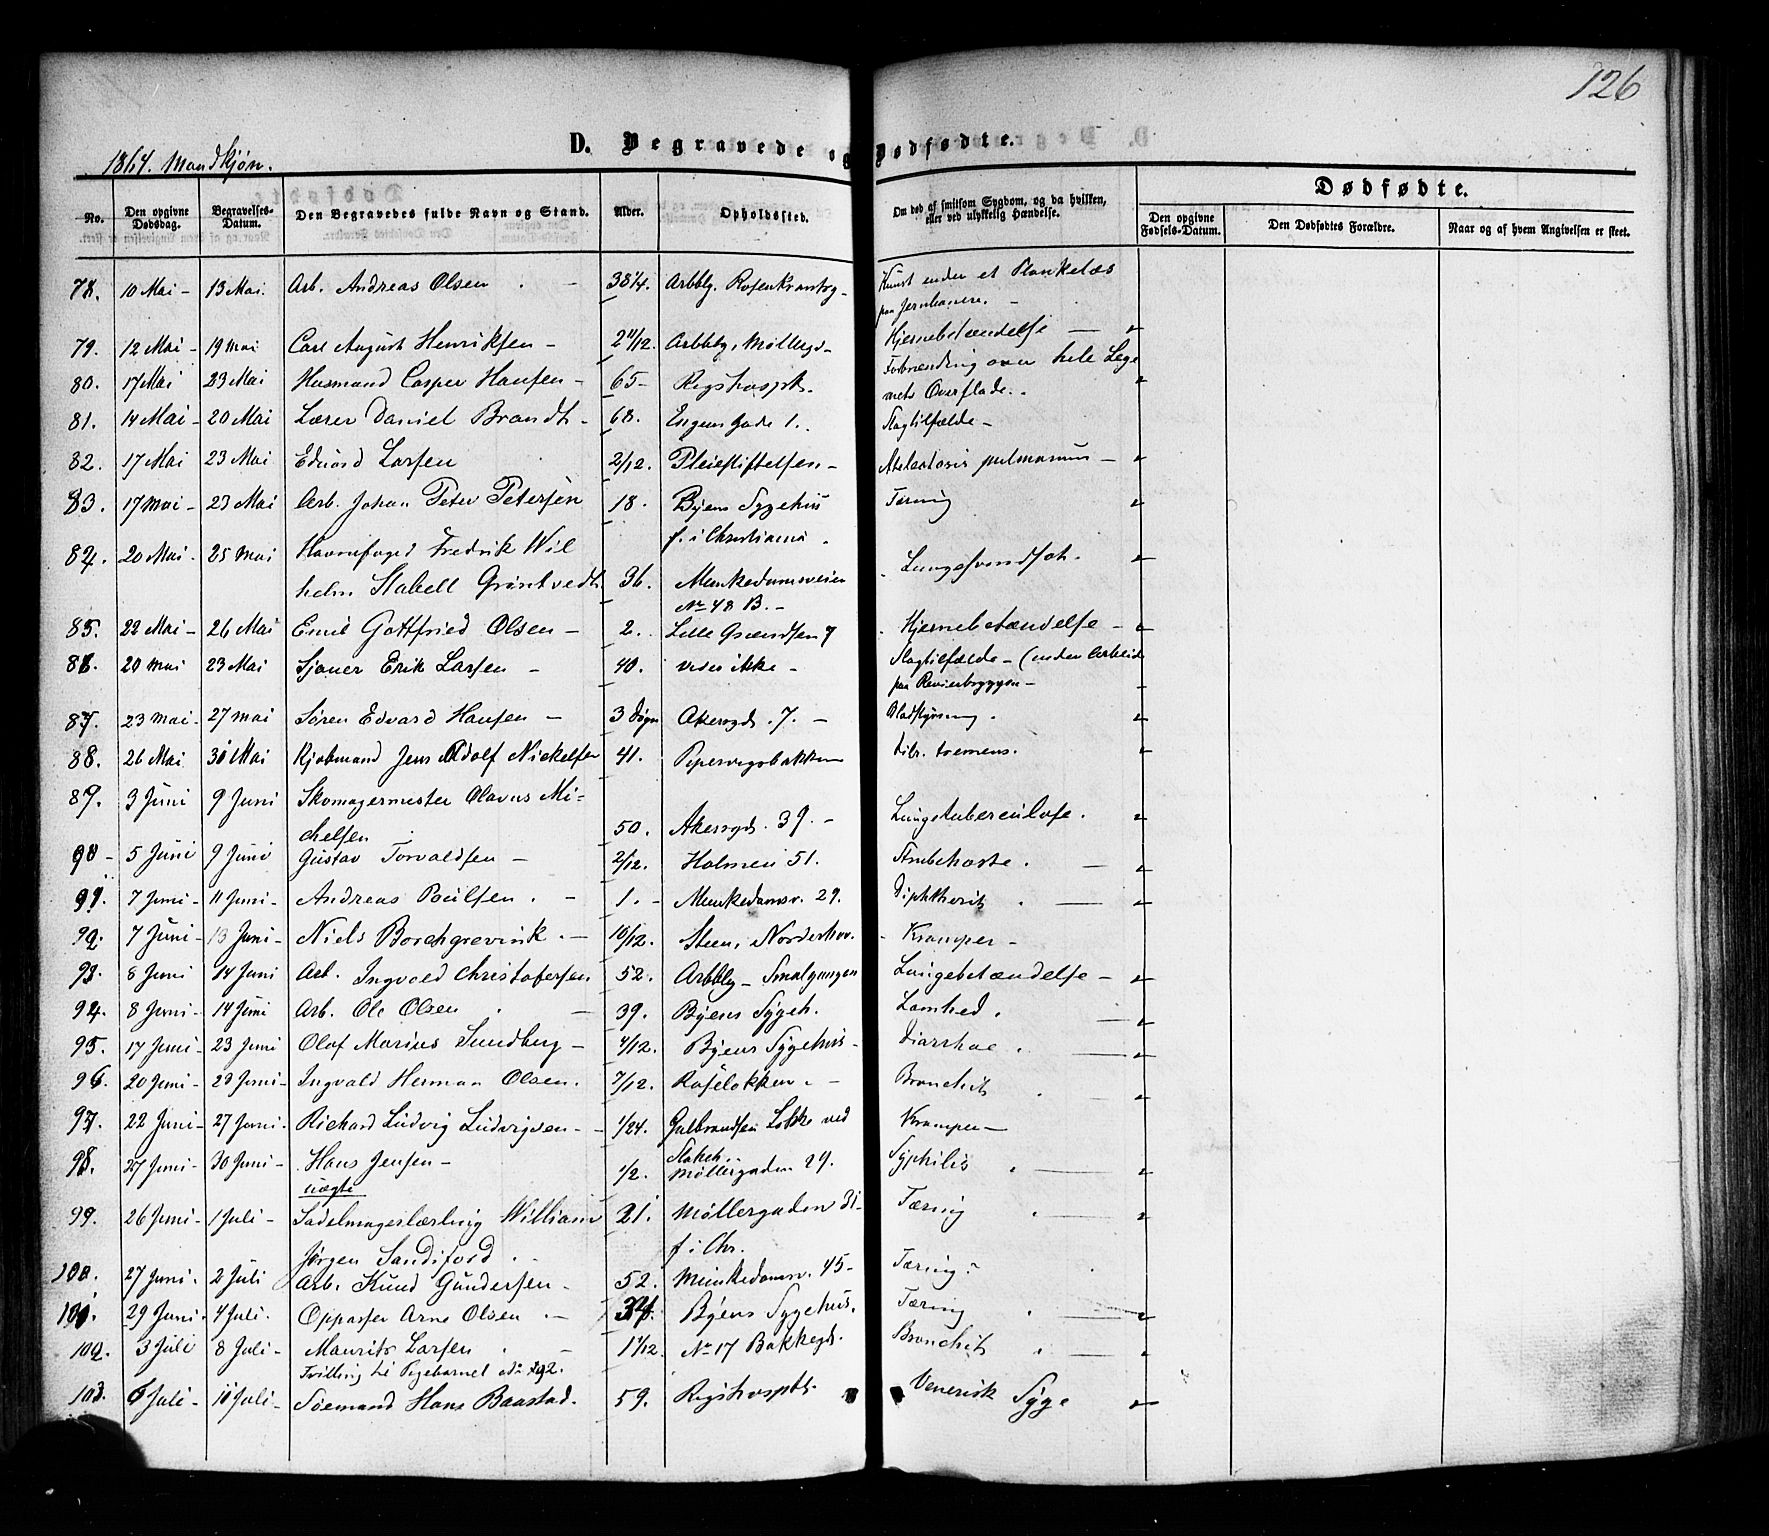 126
D. Begravede og Dødfødte.
1864. Mandkjøn.
No. | Den opgivne Dødsdag. | Begravelses-Datum. | Den Begravedes fulde Navn og Stand. | Alder. | Opholdssted. | Om død af smitsom Sygdom, og da hvilken, eller ved ulykkelig Hændelse. | Dødfødte.
Den opgivne Fødsels-Datum. | Den Dødfødtes Forældre. | Naar og af hvem Angivelsen er skeet.
78. 10 Mai - 13 Mai. Arb. Andreas Olsen . - 38 1/4. Arbblg. Rosenkrantzg - Knust under et Plankelæs
paa Jernbanen. -
79. 12 Mai - 19 Mai Carl August Henriksen - 2 11/12. Arbblg. Møllergd - Hjernebetændelse -
80. 17 Mai 23 Mai Husmand Casper Hansen - 65 - Rigshospt. Forbrænding over hele Lege
mets Overflade.
81. 14 Mai - 20 Mai Lærer Daniel Brandt - 68. Engens Gade 1. Slagtilfælde -
82. 17 Mai 23 Mai Edvard Larsen 2/12. Pleiestiftelsen - Atelectasis pulmonum -
83. 17 Mai - 23 Mai Arb. Johan Peter Petersen 18. Byens Sygehus Tæring
f. i Christiania .
84. 20 Mai - 25 Mai Havnefoged Fredrik Wil
helm Stabell Grøntvedt 36. Munkedamsveien Lungesvindsot.
No 48 B. -
85. 22 Mai - 26 Mai Emil Gottfried Olsen - 2. Lille Grændsen 7 Hjernebetændelse -
86. 20 Mai 23 Mai Sjauer Erik Larsen - 40. vides ikke - Slagtilfælde - (under Arbeid
paa Revierbryggen -
87. 23 Mai - 27 Mai Søren Edvard Hansen - 3 Døgn Akersgd. 7. - Blodstyrtning .
88. 26 Mai 30 Mai Kjøbmand Jens Adolf Nickelsen 41. Pipervigsbakken Dilr. tremens.
89. 3 Juni 9 Juni Skomagermester Olavus Mi-
chelsen 50. Akersgd. 39. - Lungetuberculose.
90 - 5 Juni 9 Juni Gustav Torvaldsen - 2/12. Holmen 51. Strubehoste.
91. 7 Juni - 11 Juni - Andreas Poulsen . - 1. - Munkedamsv. 29. Diphtherit
92. 7 Juni - 13 Juni - Niels Borchgrevink . - 10/12. Steen, Norderhov. Kramper -
93. 8 Juni 14 Juni Arb. Ingvald Christofersen 52. Arbblg - Smalgangen Lungebetændelse -
94. 8 Juni - 14 Juni Arb. Ole Olsen 39. Byens Sygeh. Lamhed.
95. 17 Juni - 23 Juni Olaf Marius Sundberg - 4/12. Byens Sygehus - Diarrhae
96. 20 Juni - 23 Juni - Ingvald Herman Olsen. 7/12. Roseløkken. - Bronchit
97. 22 Juni - 27 Juni - Richard Ludvig Ludvigsen - 1/24. Gulbrandsen Løkke ved Kramper -
98. 27 Juni - 30 Juni - Hans Jensen - 1/2. Møllergaden 29. Syphilis
uægte
99. 26 Juni - 1 Juli - Sadelmagerlærling William 21. Møllergaden 31 - Tæring
Jørgen Sandiford . f. i Chr.
100. 27 Juni. 2 Juli Arb. Knud Gundersen - 52. Munkedamsv. 45 - Tæring.
101. 29 Juni - 4 Juli. Oppasser Arne Olsen . - Byens Sygehus. Tæring
102. 3 Juli 8 Juli - Maurits Larsen 1 1/12. No 17 Bakkegd. Bronchit
Tvilling til Pigebarnet
103. 6 Juli - 11 Juli - Sømand Hans Baastad. 59. Rigshospt. Venerisk Syge